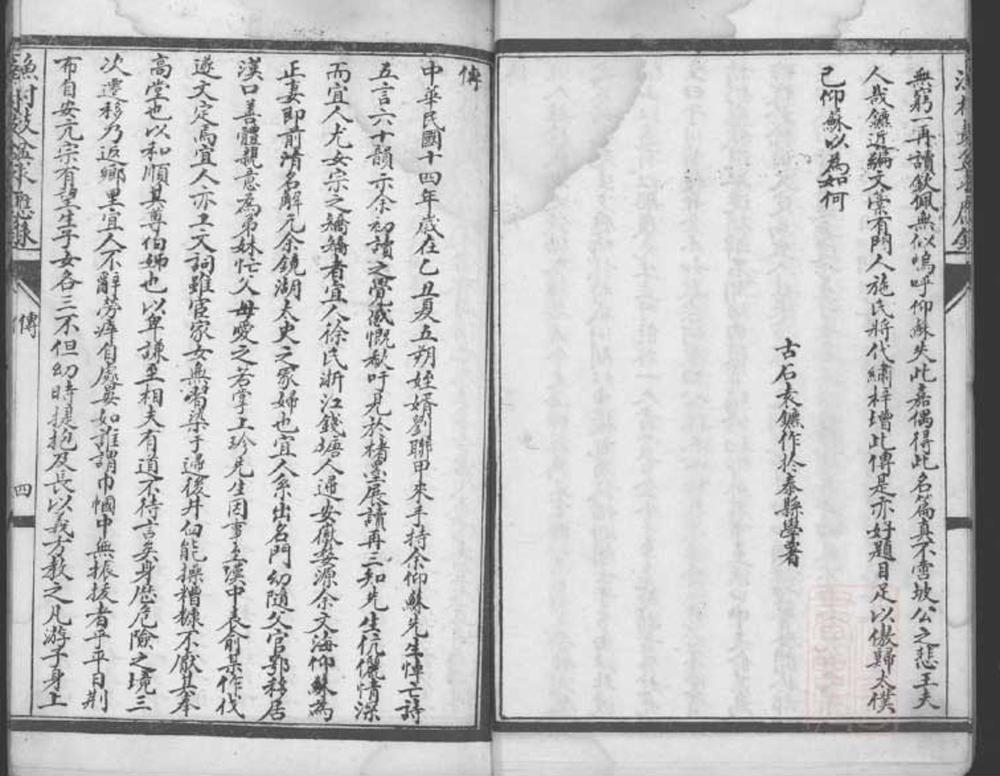 無窮一再讀欽佩無似嗚呼仰蘇失此嘉偶得此名篇真不啻坡公之悲王夫
人哉鑣近編文藁有門人施氏將代繡梓增此傳是亦好題目足以傲歸太僕
已仰蘇以為如何
古石袁鑣作於泰縣學署
傳
中華民國十四年歲在乙丑夏五朔姪婿劉聯甲來手持余仰蘇先生悼亡詩
五言六十韻示余初讀之覺感慨欷吁見於楮墨展讀再三知先生伉儷情深
而宜人尤女宗之矯矯者宜人徐氏浙江錢塘人適安徽婺源余文海仰蘇為
正妻即前清名解元余鏡湖太史之冢婦也宜人系出名門幼隨父官鄂移居
漢口善體親意為弟妹忙父母愛之若掌上珍先生因事至漢中表俞某作伐
遂文定焉宜人亦工文詞雖官家女無習染于適後井臼能操糟糠不厭其奉
高堂也以和順其尊伯娣也以卑謙至相夫有道不待言矣身歷危險之境三
次遷移乃返鄉里宜人不辭勞瘁自處晏如誰謂巾幗中無振拔者乎平日荆
布自安亢宗有望生子女各三不但幼時提抱及長以義方教之凡游子身上
傳
四